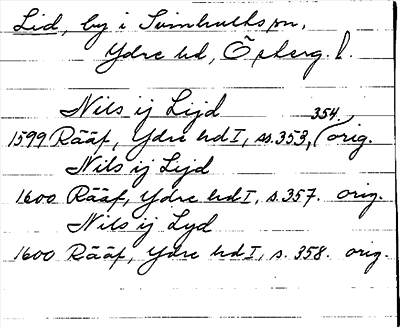 Lid, by i Svinhults sn,
Ydre hd, Österg. l.
Nils ij Lijd
1599 Rääf, Ydre hd I, ss. 353, 354. orig.
Nils ij Lijd
1600 Rääf, Ydre hd I, s. 357. orig.
Nils ij Lyd
1600 Rääf, Ydre hd I, s. 358. orig.